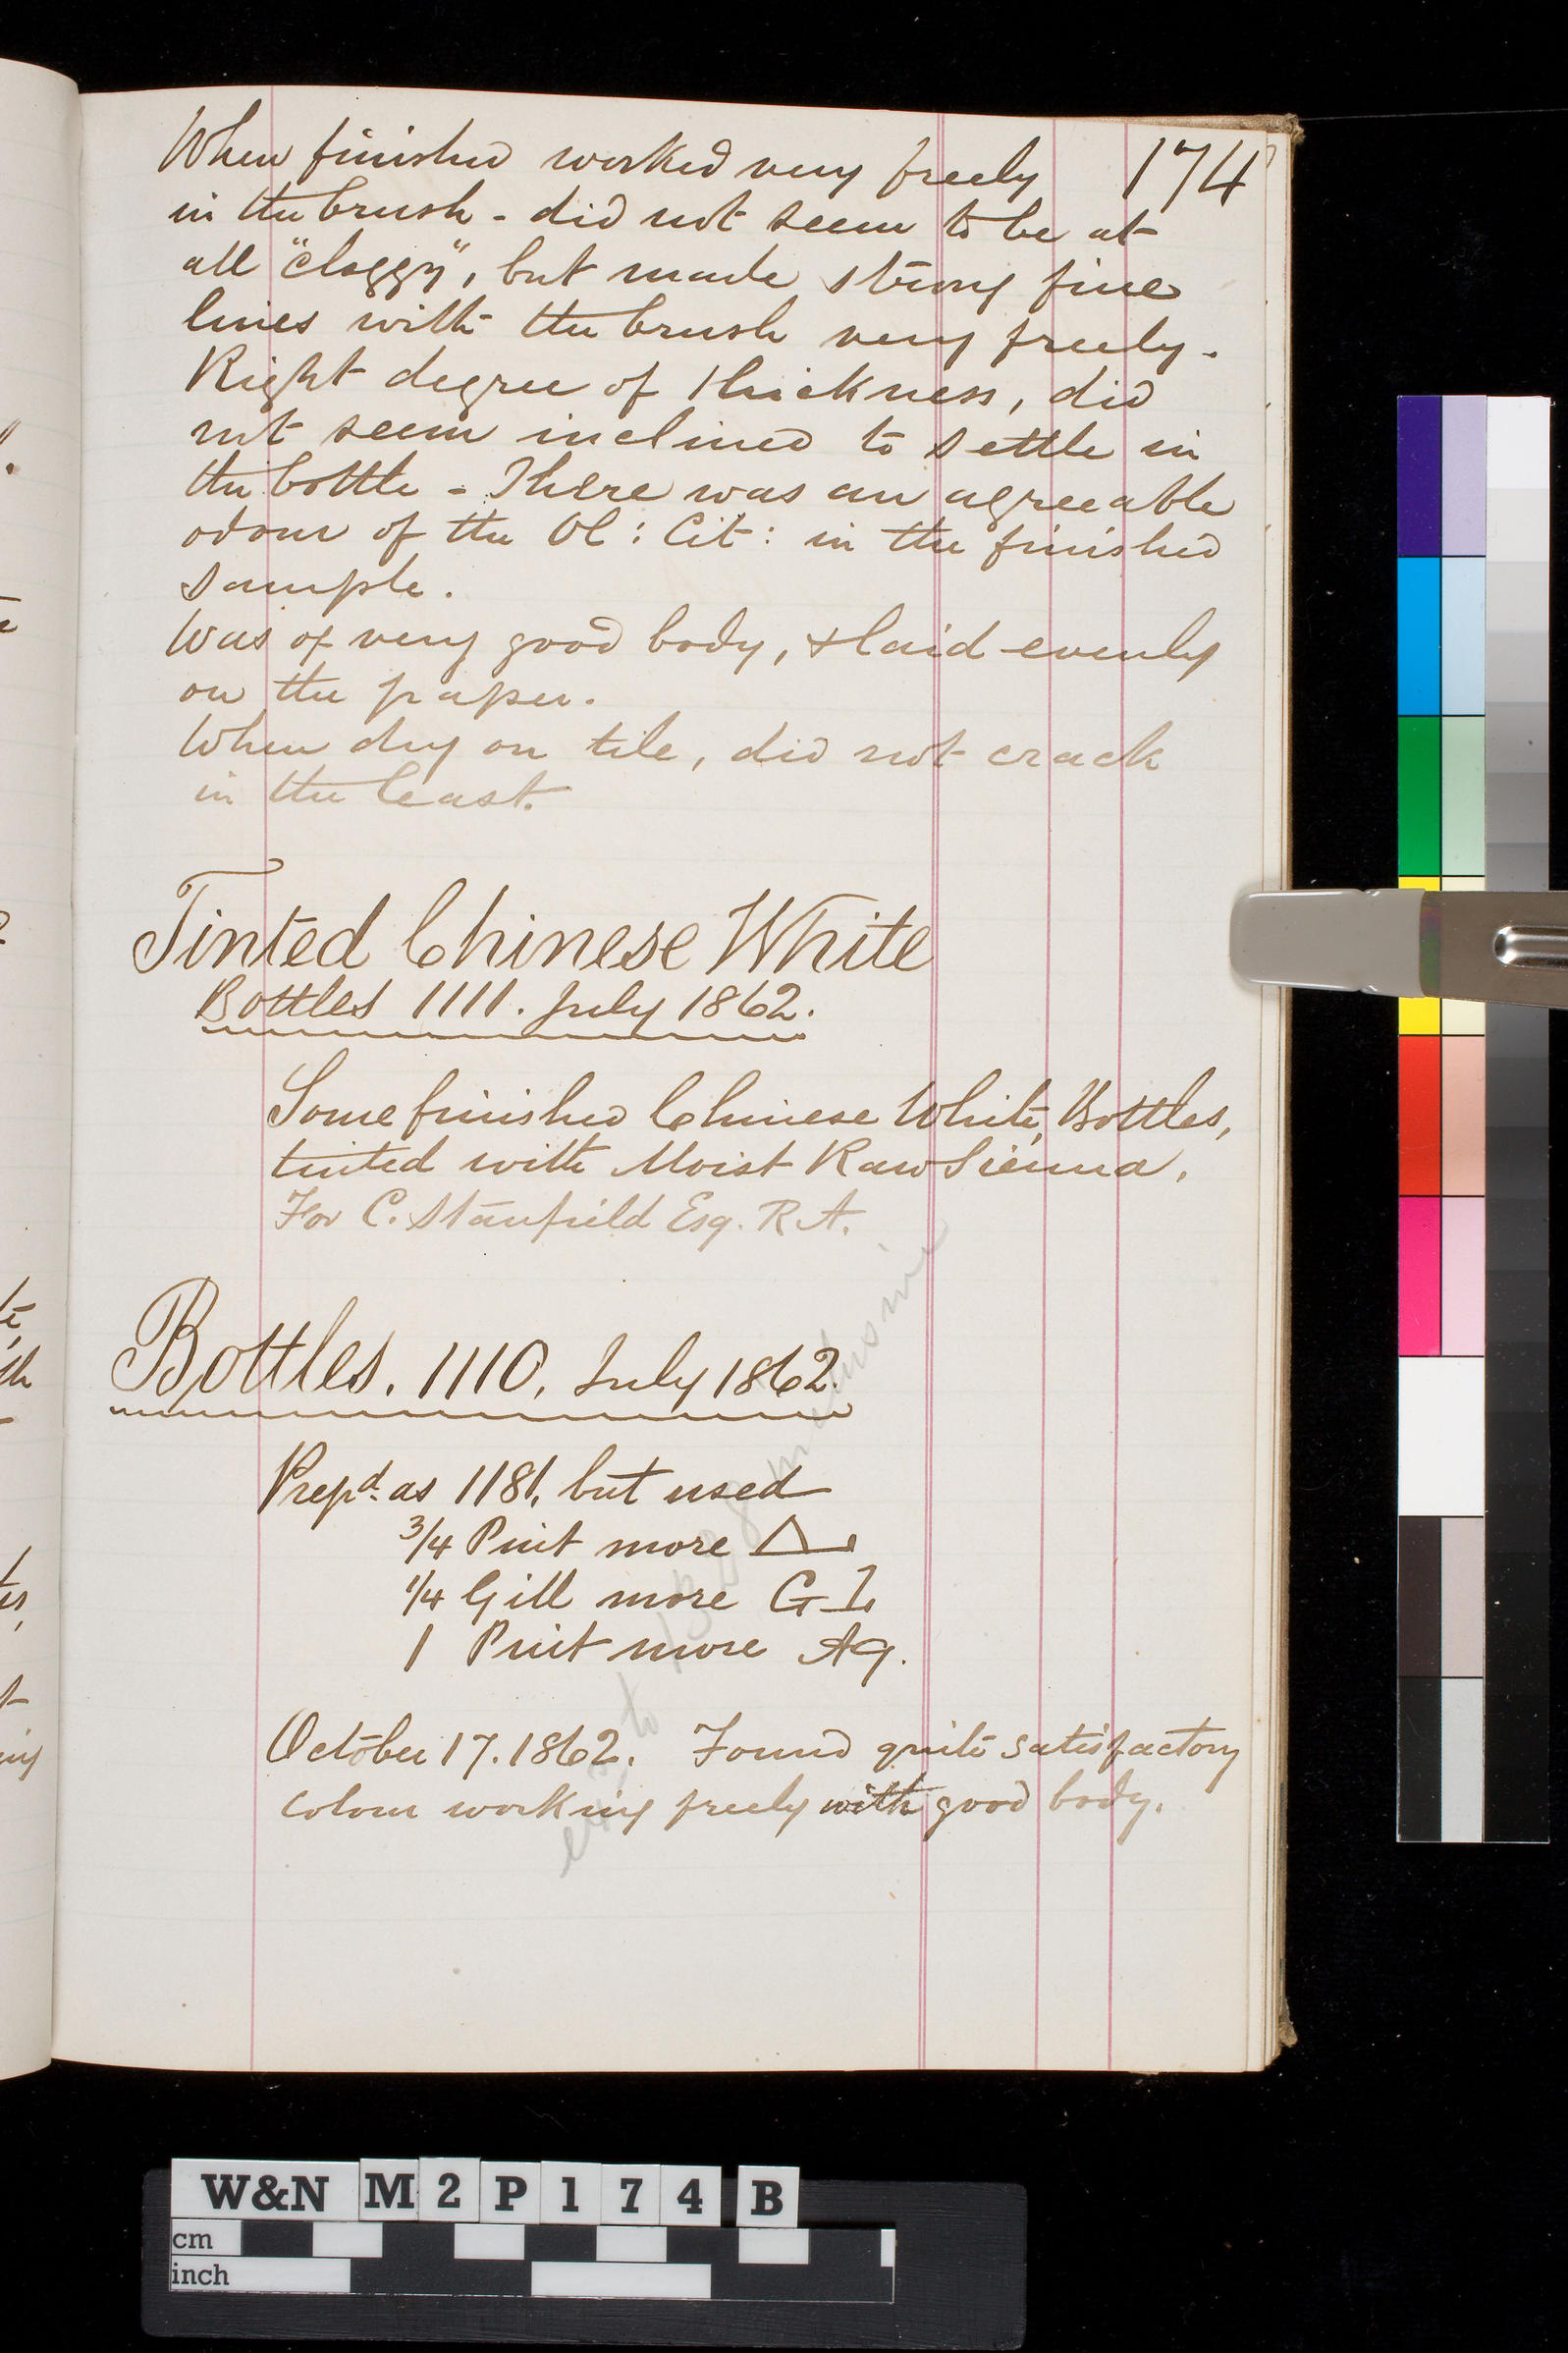 174
When finished worked very freely
in the brush - did not seem to be at
all "cloggy", but made strong fine
lines with the brush very freely.
Right degree of thickness, did
not seem inclined to settle in
the bottle - There was an agreeable
odour of the Ol: Cit: in the finished
sample.
Was of very good body, & laid evenly
on the paper.
When dry on tile, did not crack
in the least.
Tinted Chinese White
Bottles 1111. July 1862.
Some finished Chinese White, Bottles,
tinted with Moist Raw Sienna.
For C. Stanfield Esq. R.A.
Bottles. 1110. July 1862.
Prepd. as 1181, but used
3/4 Pint more
1/4 Gill more
1 Pint more Aq.
October 17. 1862. Found quite satisfactory
colour working freely with good body.
W&N M2P174B
cm
inch